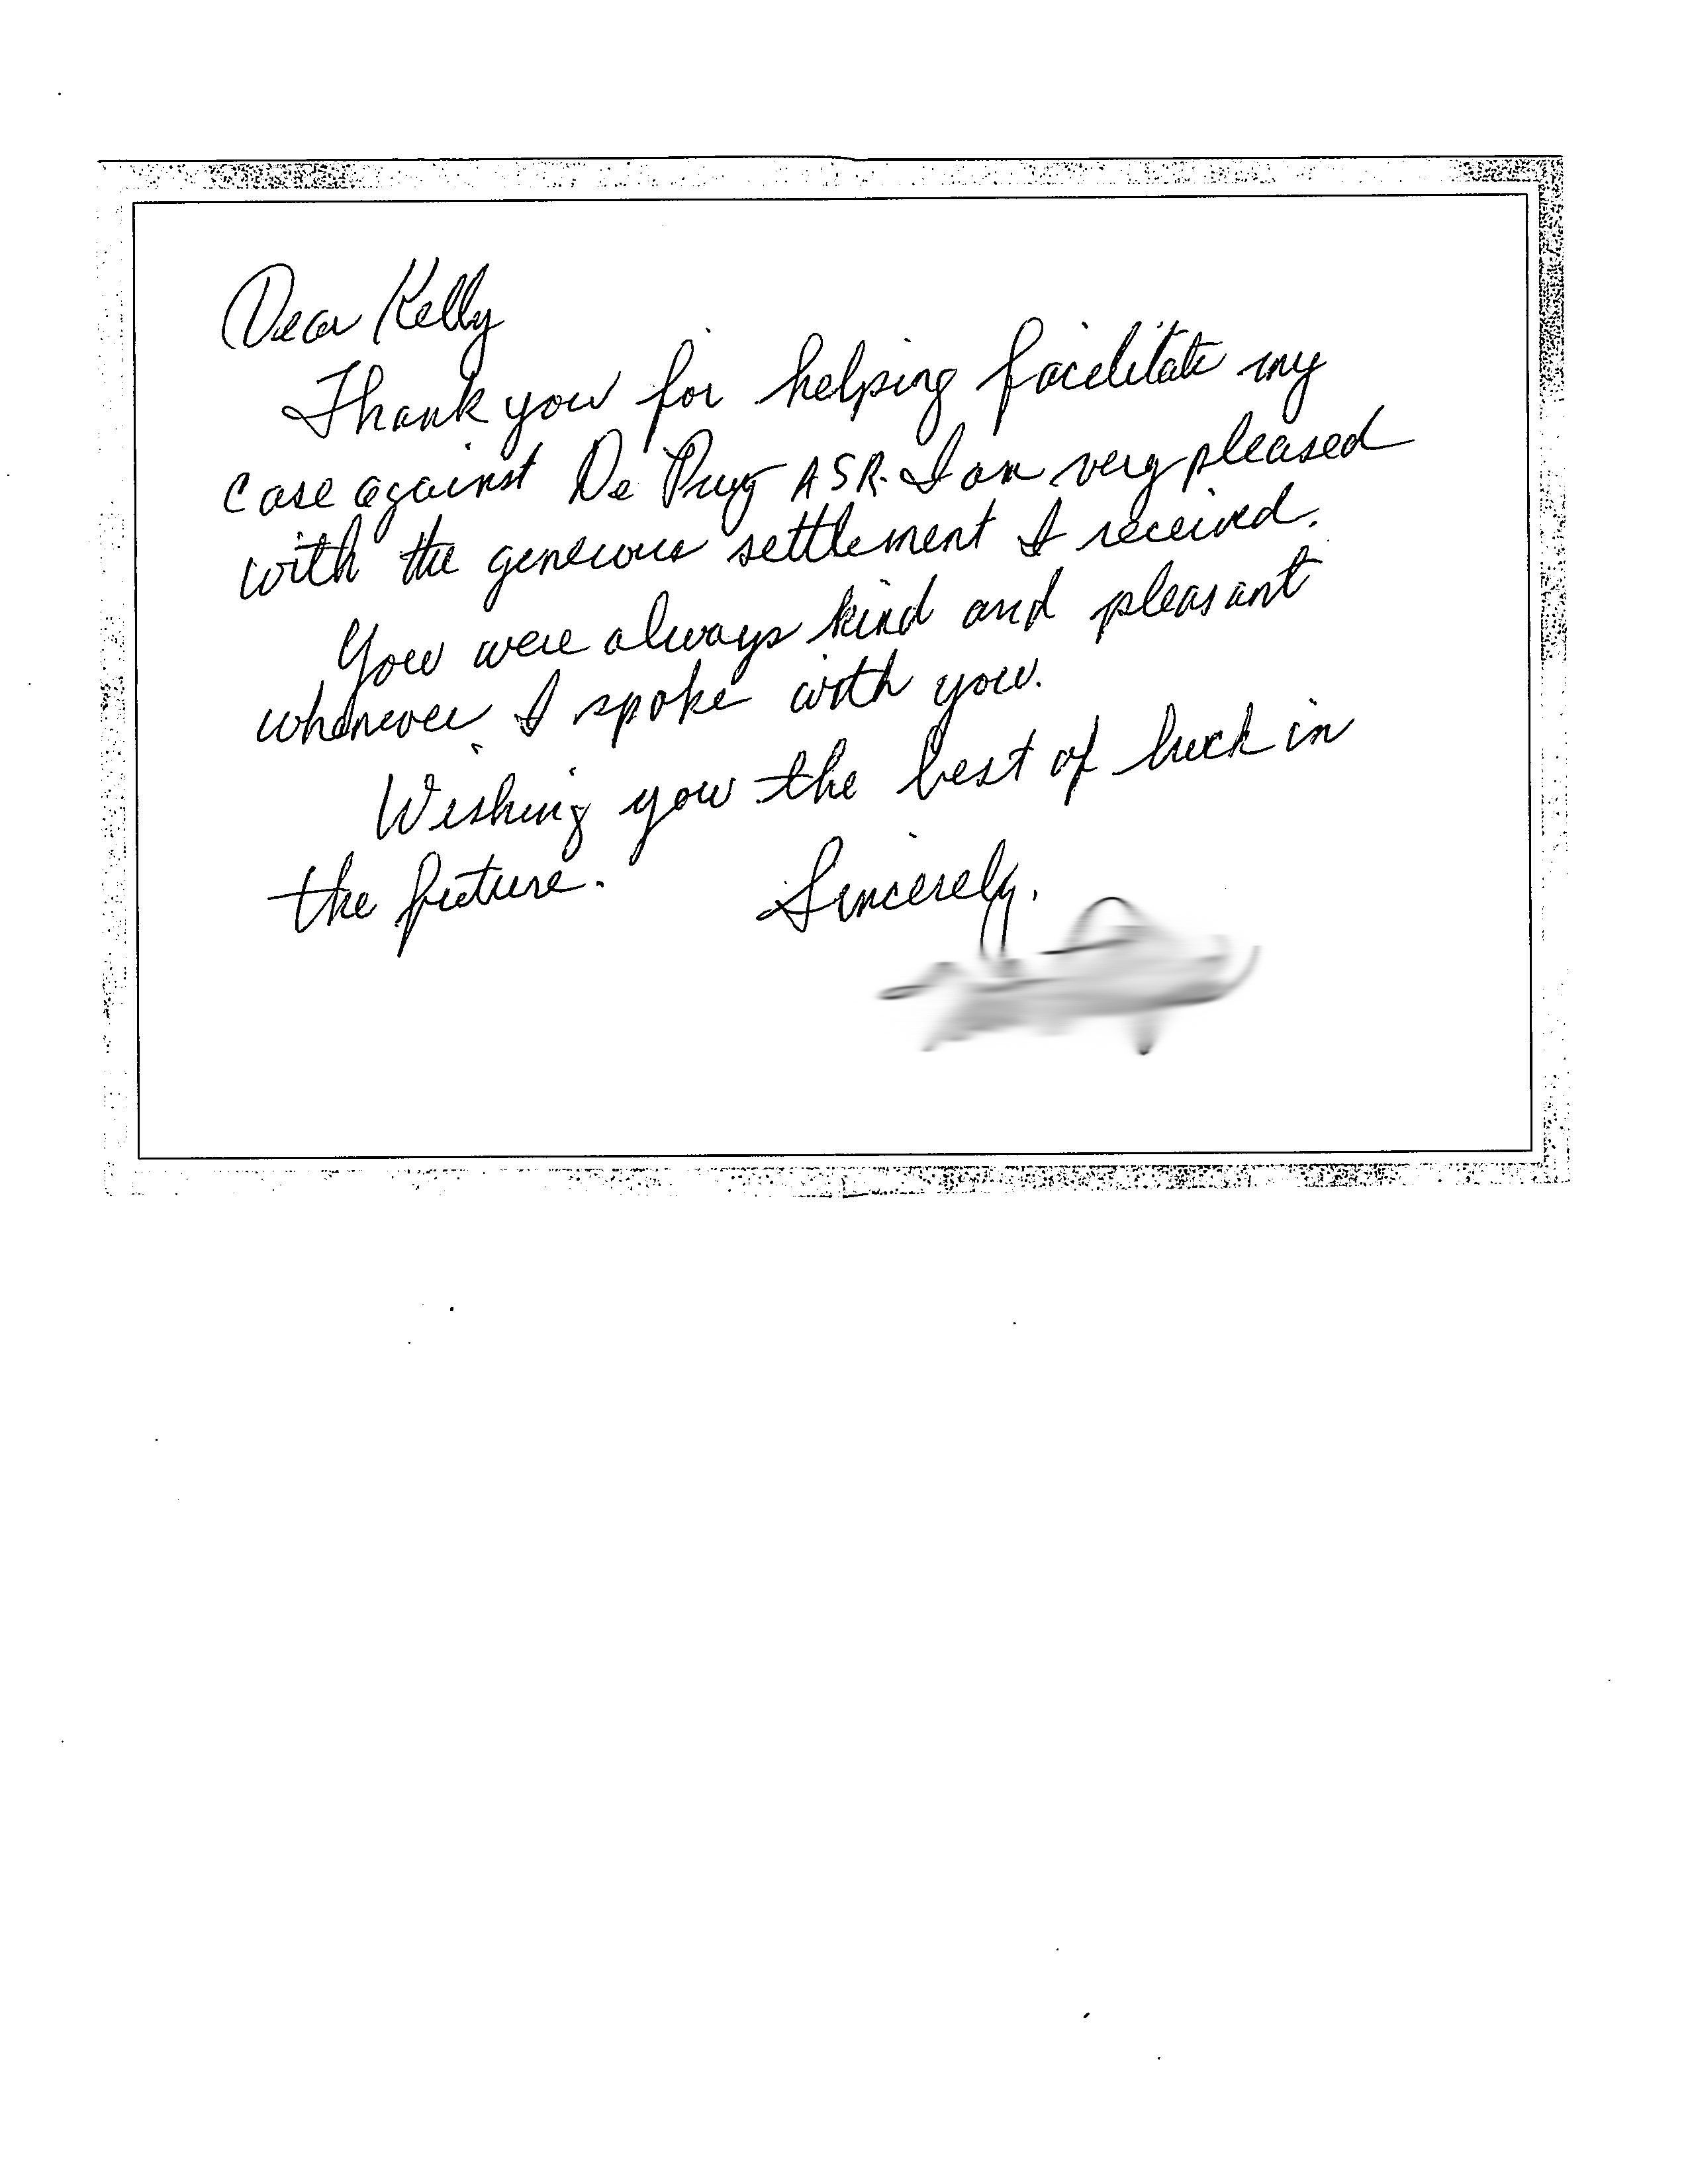 Dear Kelly
Thank you for helping facilitate my
case against De Puy ASR. I am very pleased
with the generous settlement I received.
You were always kind and pleasant
whenever I spoke with you.
Wishing you the best of luck in
the future. Sincerely,